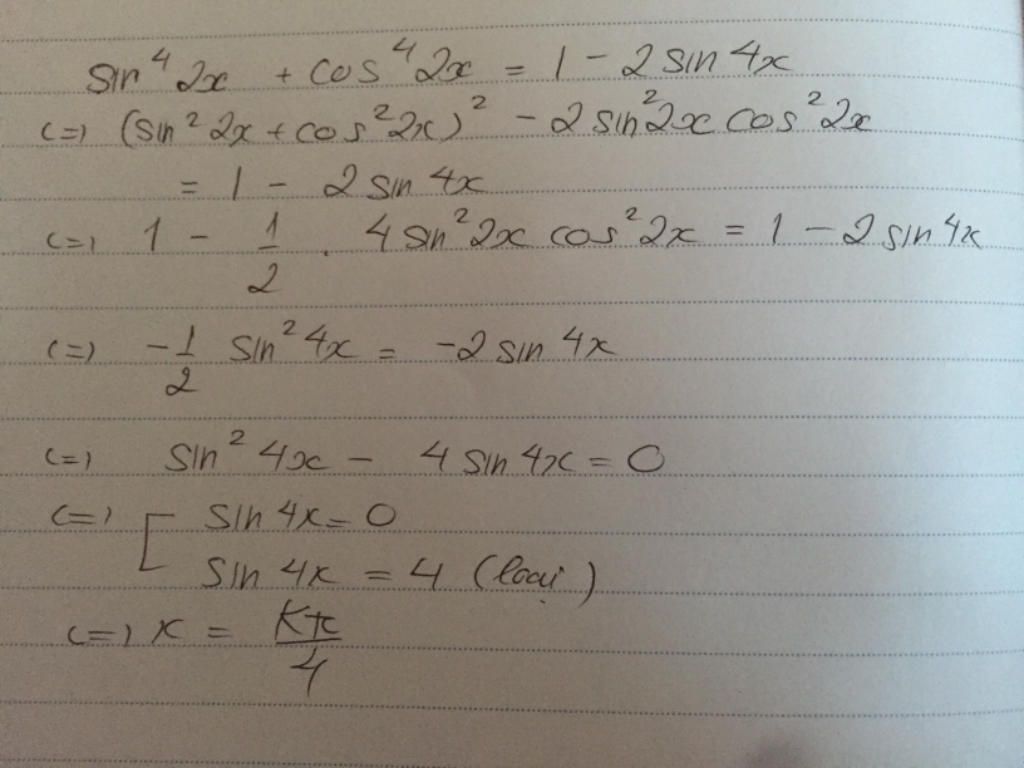 sin⁴2x + cos⁴2x = 1 - 2 sin 4x
(=) (sin²2x + cos²2x)² - 2 sin²2x cos²2x
= 1 - 2 sin 4x
(=) 1 - 1/2 . 4 sin²2x cos²2x = 1 - 2 sin 4x
(=) -1/2 sin²4x = -2 sin 4x
(=) sin²4x - 4 sin 4x = 0
(=) [ sin 4x = 0
sin 4x = 4 (loại)
(=) x = kπ/4